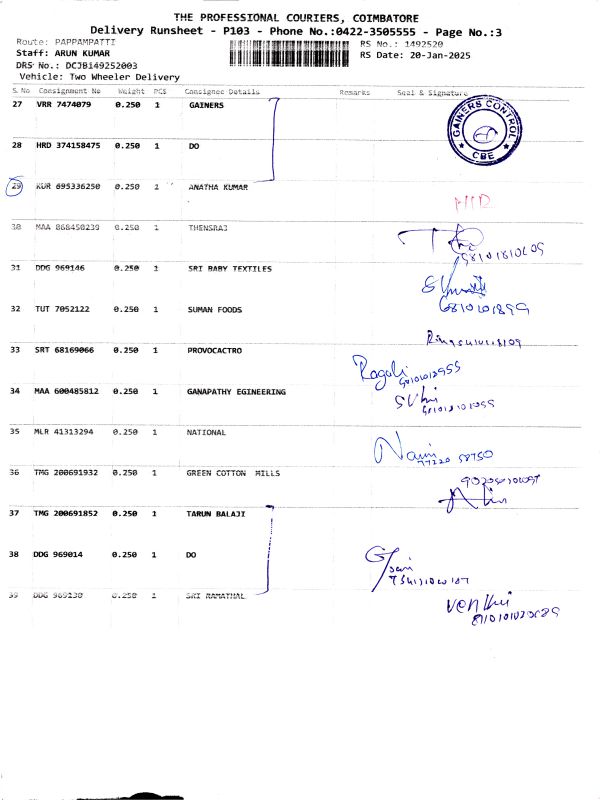 THE PROFESSIONAL COURIERS, COIMBATORE
Delivery Runsheet - P103 - Phone No.:0422-3505555 - Page No.:3
Route: PAPPAMPATTI RS No.: 1492520
Staff: ARUN KUMAR RS Date: 20-Jan-2025
DRS No.: DCJB149252003
Vehicle: Two Wheeler Delivery
S.No Consignment No Weight PCS Consignee Details Remarks Seal & Signature
27 VRR 7474079 0.250 1 GAINERS
GAINERS CONTROL
CBE
28 HRD 374158475 0.250 1 DO
29 KUR 695336250 0.250 1 ANATHA KUMAR
30 MAA 868450239 0.250 1 THENSRAJ
31 DDG 969146 0.250 1 SRI BABY TEXTILES
32 TUT 7052122 0.250 1 SUMAN FOODS
33 SRT 68169066 0.250 1 PROVOCACTRO
34 MAA 600485812 0.250 1 GANAPATHY EGINEERING
35 MLR 41313294 0.250 1 NATIONAL
36 TMG 200691932 0.250 1 GREEN COTTON MILLS
37 TMG 200691852 0.250 1 TARUN BALAJI
38 DDG 969014 0.250 1 DO
39 DDG 969130 0.250 1 SRI RAMATHAL